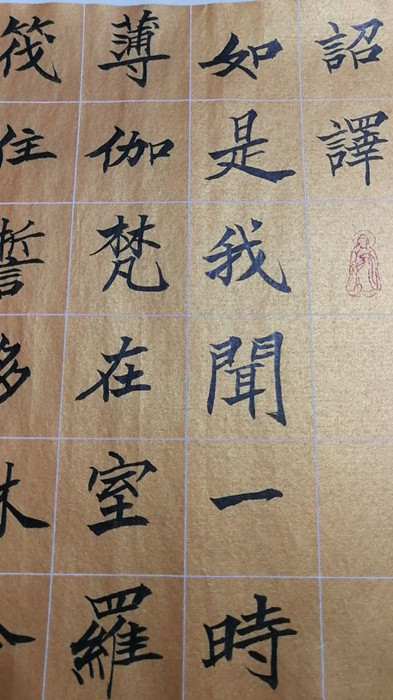 詔譯
如是我聞一時
薄伽梵在室羅
筏住誓多林